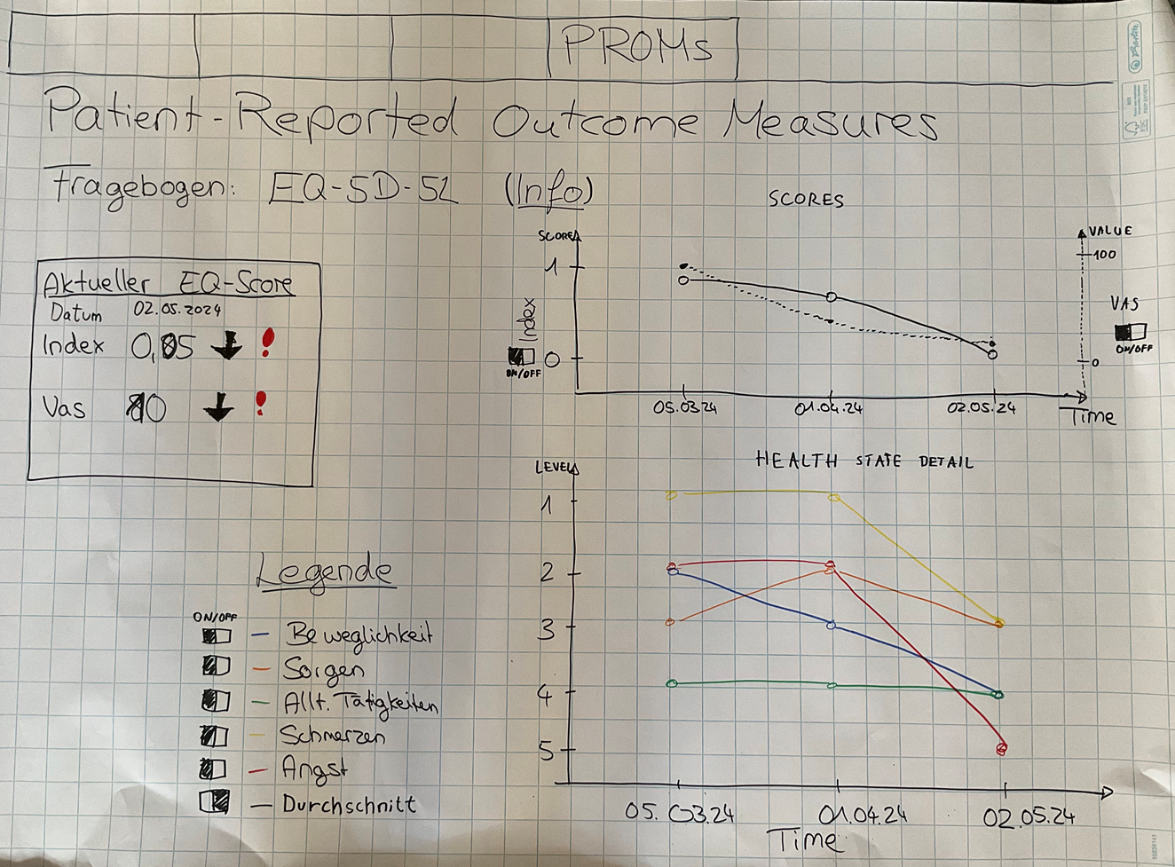 PROMs
Patient-Reported Outcome Measures
Fragebogen: EQ-5D-5L (Info)
Aktueller EQ-Score
Datum 02.05.2024
Index 0,05 !
Vas 10 !
SCORES
SCORE
1
0
Index
ON/OFF
VALUE
100
0
VAS
ON/OFF
05.03.24 01.04.24 02.05.24
Time
HEALTH STATE DETAIL
LEVEL
1
2
3
4
5
05.03.24 01.04.24 02.05.24
Time
Legende
ON/OFF
Beweglichkeit
Sorgen
Allt. Tätigkeiten
Schmerzen
Angst
Durchschnitt